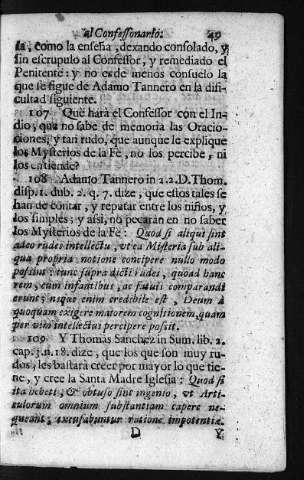 al Confessonario. 49
la, como la enseña, dexando consolado, y
sin escrupulo al Confessor, y remediado el
Penitente: y no es de menos consuelo la
que se sigue de Adamo Tannero en la difi-
cultad siguiente.
107 Què harà el Confessor con el In-
dio, que no sabe de memoria las Oracio-
ciones, y tan rudo, que aunque le explique
los Mysterios de la Fè, no los percibe, ni
los entiende?
108 Adamo Tannero in 2.2.D.Thom.
disp. 1. dub. 2. q. 7. dize, que estos tales se
han de contar, y reputar entre los niños, y
los simples; y assi, no pecaràn en no saber
los Mysterios de la Fè: Quod si aliqui sint
adeo rudes intellectu, vt ea Misteria sub ali-
qua propria notione concipere nullo modo
possint: tunc supra dicti rudes, quoad hanc
rem, cum infantibus, ac fatuis comparandi
erunt; neque enim credibile est, Deum à
quoquam exigere maiorem cognitionem, quam
per vim intellectus percipere possit.
109 Y Thomas Sanchez in Sum. lib. 2.
cap. 3. n. 18. dize, que los que son muy ru-
dos, les bastarà creer por mayor lo que tie-
ne, y cree la Santa Madre Iglesia: Quod si
ita hebeti, & obtuso sint ingenio, vt Arti-
culorum omnium substantiam capere ne-
queant, excusabuntur ratione impotentiæ.
D Y